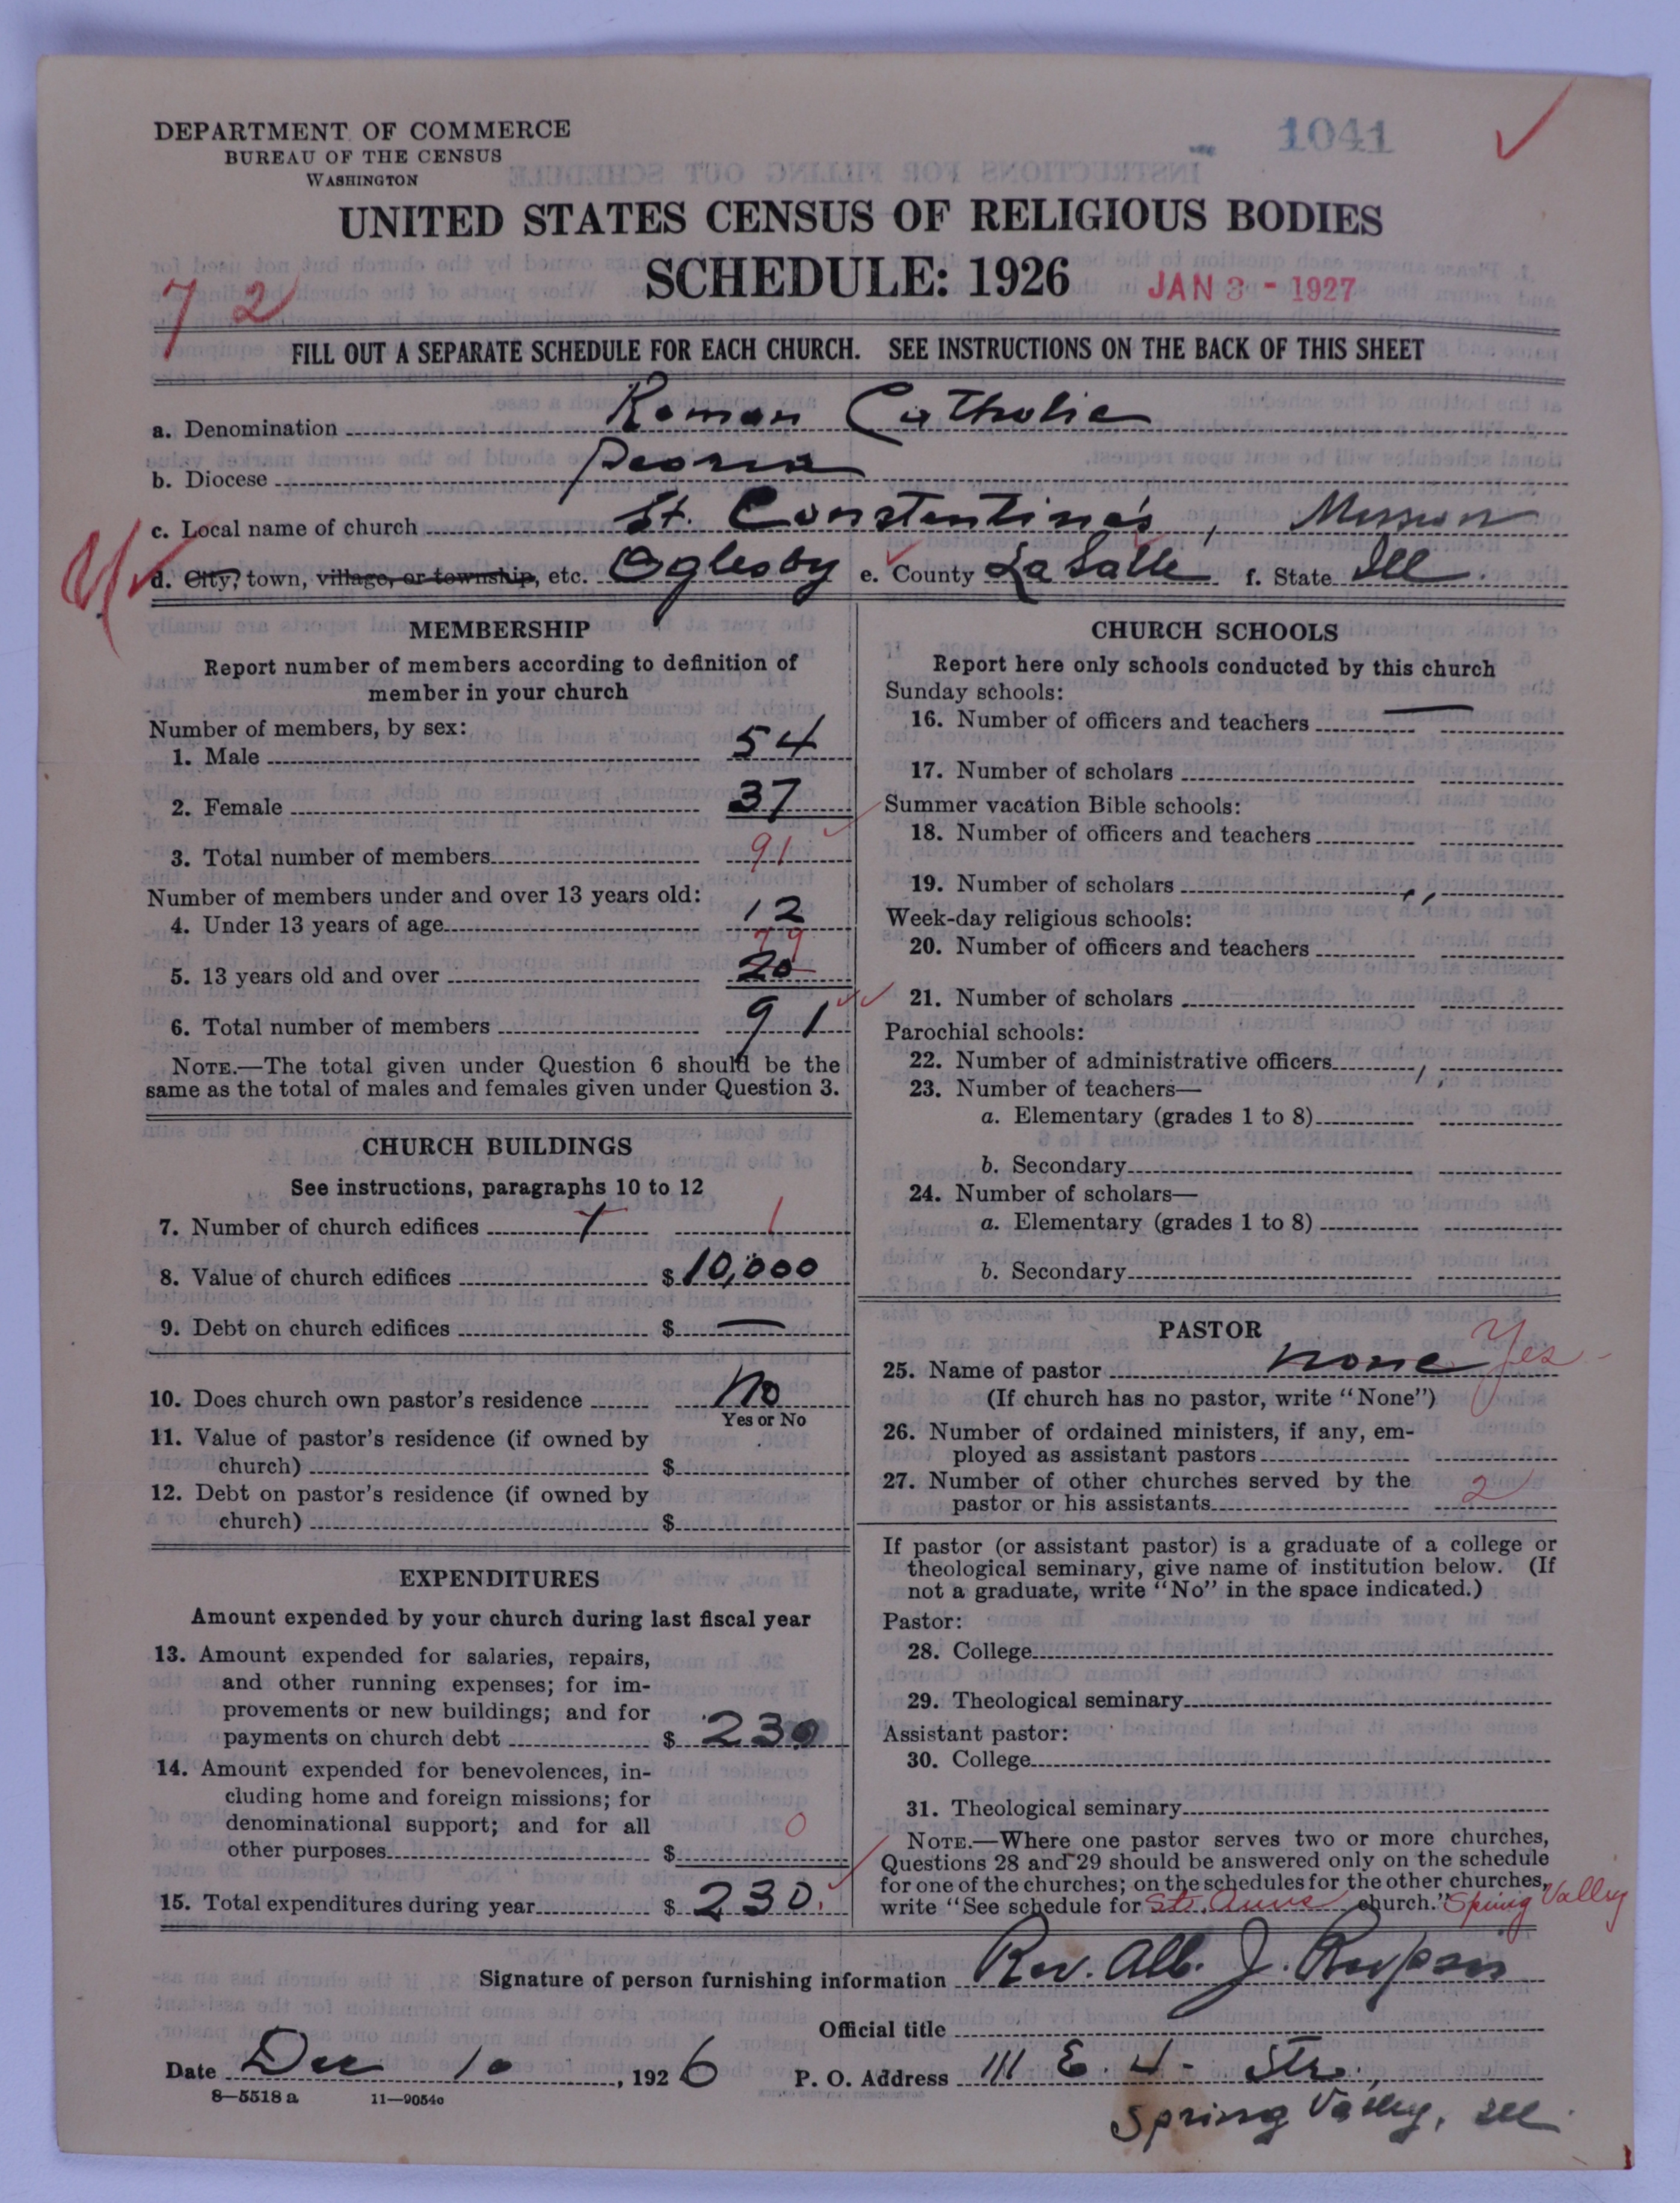 DEPARTMENT OF COMMERCE
BUREAU OF THE CENSUS
WASHINGTON
1041
UNITED STATES CENSUS OF RELIGIOUS BODIES
SCHEDULE: 1926
JAN 3 - 1927
72
FILL OUT A SEPARATE SCHEDULE FOR EACH CHURCH. SEE INSTRUCTIONS ON THE BACK OF THIS SHEET
a. Denomination Roman Catholic
b. Diocese Peoria
c. Local name of church St. Constantine's, Mission
d. City, town, village, or township, etc. Oglesby e. County LaSalle f. State Ill.
MEMBERSHIP
Report number of members according to definition of
member in your church
Number of members, by sex:
1. Male 54
2. Female 37
3. Total number of members 91
Number of members under and over 13 years old:
4. Under 13 years of age 12
79
5. 13 years old and over 20
6. Total number of members 91
NOTE.—The total given under Question 6 should be the
same as the total of males and females given under Question 3.
CHURCH BUILDINGS
See instructions, paragraphs 10 to 12
7. Number of church edifices 1 1
8. Value of church edifices $10,000
9. Debt on church edifices $ —
10. Does church own pastor's residence No
Yes or No
11. Value of pastor's residence (if owned by
church) $
12. Debt on pastor's residence (if owned by
church) $
EXPENDITURES
Amount expended by your church during last fiscal year
13. Amount expended for salaries, repairs,
and other running expenses; for im-
provements or new buildings; and for
payments on church debt $ 230
14. Amount expended for benevolences, in-
cluding home and foreign missions; for
denominational support; and for all
other purposes $ 0
15. Total expenditures during year $ 230.
CHURCH SCHOOLS
Report here only schools conducted by this church
Sunday schools:
16. Number of officers and teachers —
17. Number of scholars
Summer vacation Bible schools:
18. Number of officers and teachers
19. Number of scholars
Week-day religious schools:
20. Number of officers and teachers
21. Number of scholars
Parochial schools:
22. Number of administrative officers
23. Number of teachers—
a. Elementary (grades 1 to 8)
b. Secondary
24. Number of scholars—
a. Elementary (grades 1 to 8)
b. Secondary
PASTOR
25. Name of pastor none Yes
(If church has no pastor, write "None")
26. Number of ordained ministers, if any, em-
ployed as assistant pastors
27. Number of other churches served by the
pastor or his assistants 2
If pastor (or assistant pastor) is a graduate of a college or
theological seminary, give name of institution below. (If
not a graduate, write "No" in the space indicated.)
Pastor:
28. College
29. Theological seminary
Assistant pastor:
30. College
31. Theological seminary
NOTE.—Where one pastor serves two or more churches,
Questions 28 and 29 should be answered only on the schedule
for one of the churches; on the schedules for the other churches,
write "See schedule for Sts. Anne church." Spring Valley
Signature of person furnishing information Rev. Alb. J.
Official title
Date Dec 10, 1926 P. O. Address 111 E. 4- Str.,
8—5518 a 11—9054a
Spring Valley, Ill.